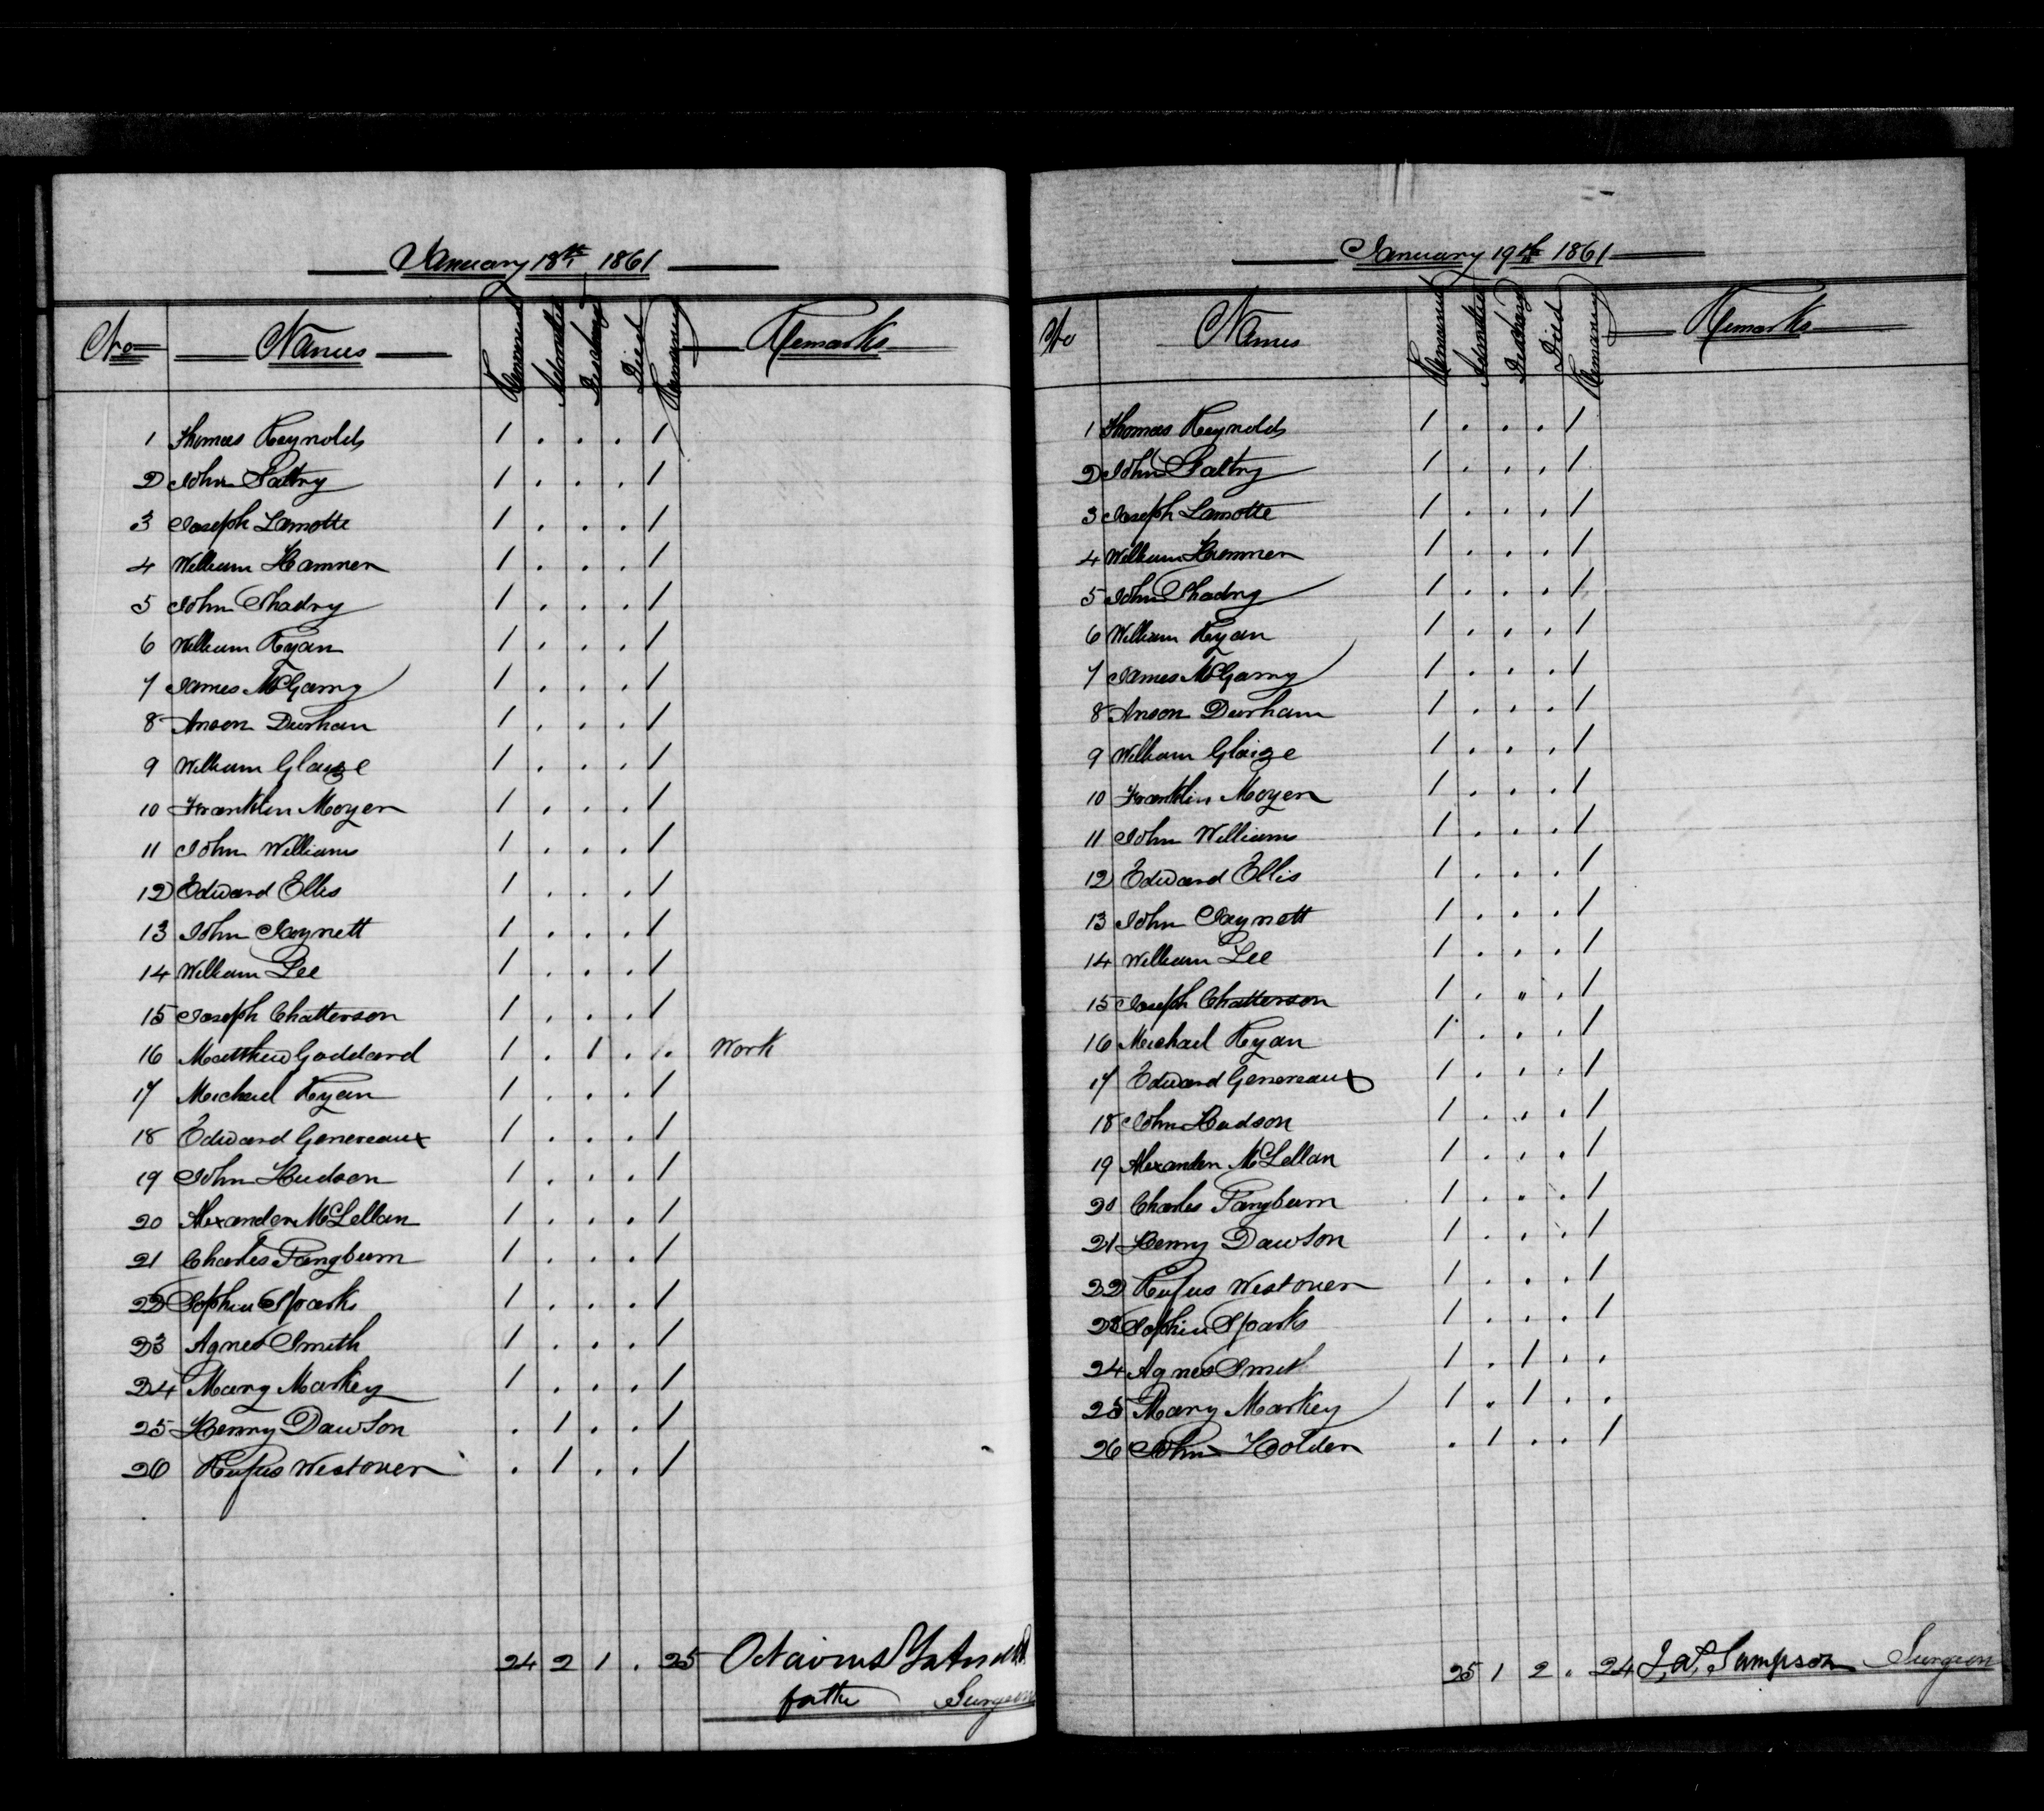 January 18th 1861
No Names Remained Admitted Discharged Died Remaining Remarks
1 Thomas Reynolds 1 . . . 1
2 John Saltry 1 . . . 1
3 Joseph Lamotte 1 . . . 1
4 William Hamner 1 . . . 1
5 John Shadry 1 . . . 1
6 William Ryan 1 . . . 1
7 James McGarry 1 . . . 1
8 Anson Durham 1 . . . 1
9 William Glaize 1 . . . 1
10 Franklin Moyer 1 . . . 1
11 John Williams 1 . . . 1
12 Edward Ellis 1 . . . 1
13 John Jaynett 1 . . . 1
14 William Lee 1 . . . 1
15 Joseph Chatterson 1 . . . 1
16 Matthew Goddard 1 . 1 . . Work
17 Michael Ryan 1 . . . 1
18 Edward Genereaux 1 . . . 1
19 John Hudson 1 . . . 1
20 Alexander McLellan 1 . . . 1
21 Charles Pangburn 1 . . . 1
22 Sophia Sparks 1 . . . 1
23 Agnes Smith 1 . . . 1
24 Mary Markey 1 . . . 1
25 Henry Dawson . 1 . . 1
26 Rufus Westover . 1 . . 1
24 2 1 . 25 Octavius
for the Surgeon
January 19th 1861
No Names Remained Admitted Discharg Died Remaining Remarks
1 Thomas Reynolds 1 . . . 1
2 John Saltry 1 . . . 1
3 Joseph Lamotte 1 . . . 1
4 William Hamner 1 . . . 1
5 John Shadry 1 . . . 1
6 William Ryan 1 . . . 1
7 James McGarry 1 . . . 1
8 Anson Durham 1 . . . 1
9 William Glaize 1 . . . 1
10 Franklin Moyer 1 . . . 1
11 John Williams 1 . . . 1
12 Edward Ellis 1 . . . 1
13 John Jaynett 1 . . . 1
14 William Lee 1 . . . 1
15 Joseph Chatterson 1 . . . 1
16 Michael Ryan 1 . . . 1
17 Edward Genereaux 1 . . . 1
18 John Hudson 1 . . . 1
19 Alexander McLellan 1 . . . 1
20 Charles Pangburn 1 . . . 1
21 Henry Dawson 1 . . . 1
22 Rufus Westover 1 . . . 1
23 Sophia Sparks 1 . . . 1
24 Agnes Smith 1 . 1 . .
25 Mary Markey 1 . 1 . .
26 John Holden . 1 . . 1
25 1 2 . 24 J. A. Sampson Surgeon